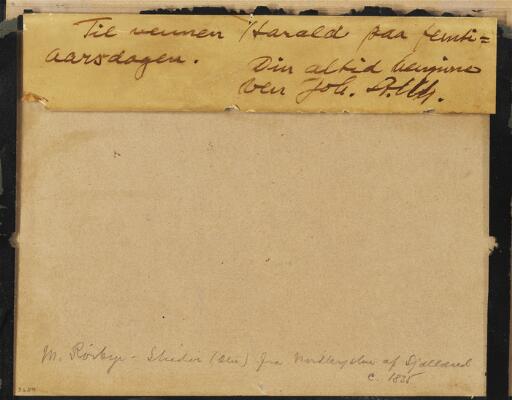 Til vennen Harald paa femti=
aarsdagen. Din altid hengivne
ven Joh.
M. Rørbye - Studie (Olie) fra Nordkysten af Sjælland
c. 1835